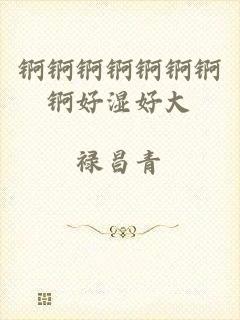 锕锕锕锕锕锕锕
锕好湿好大
禄昌青